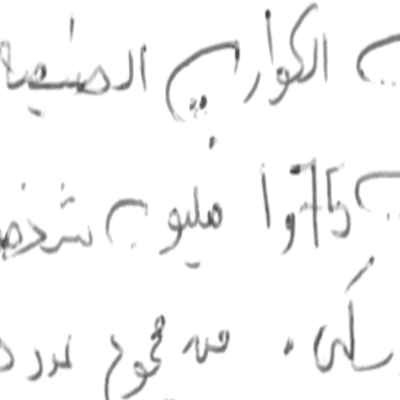 الكوارث الطبيعية
1,75 مليون شخص
. من مجموع عدد